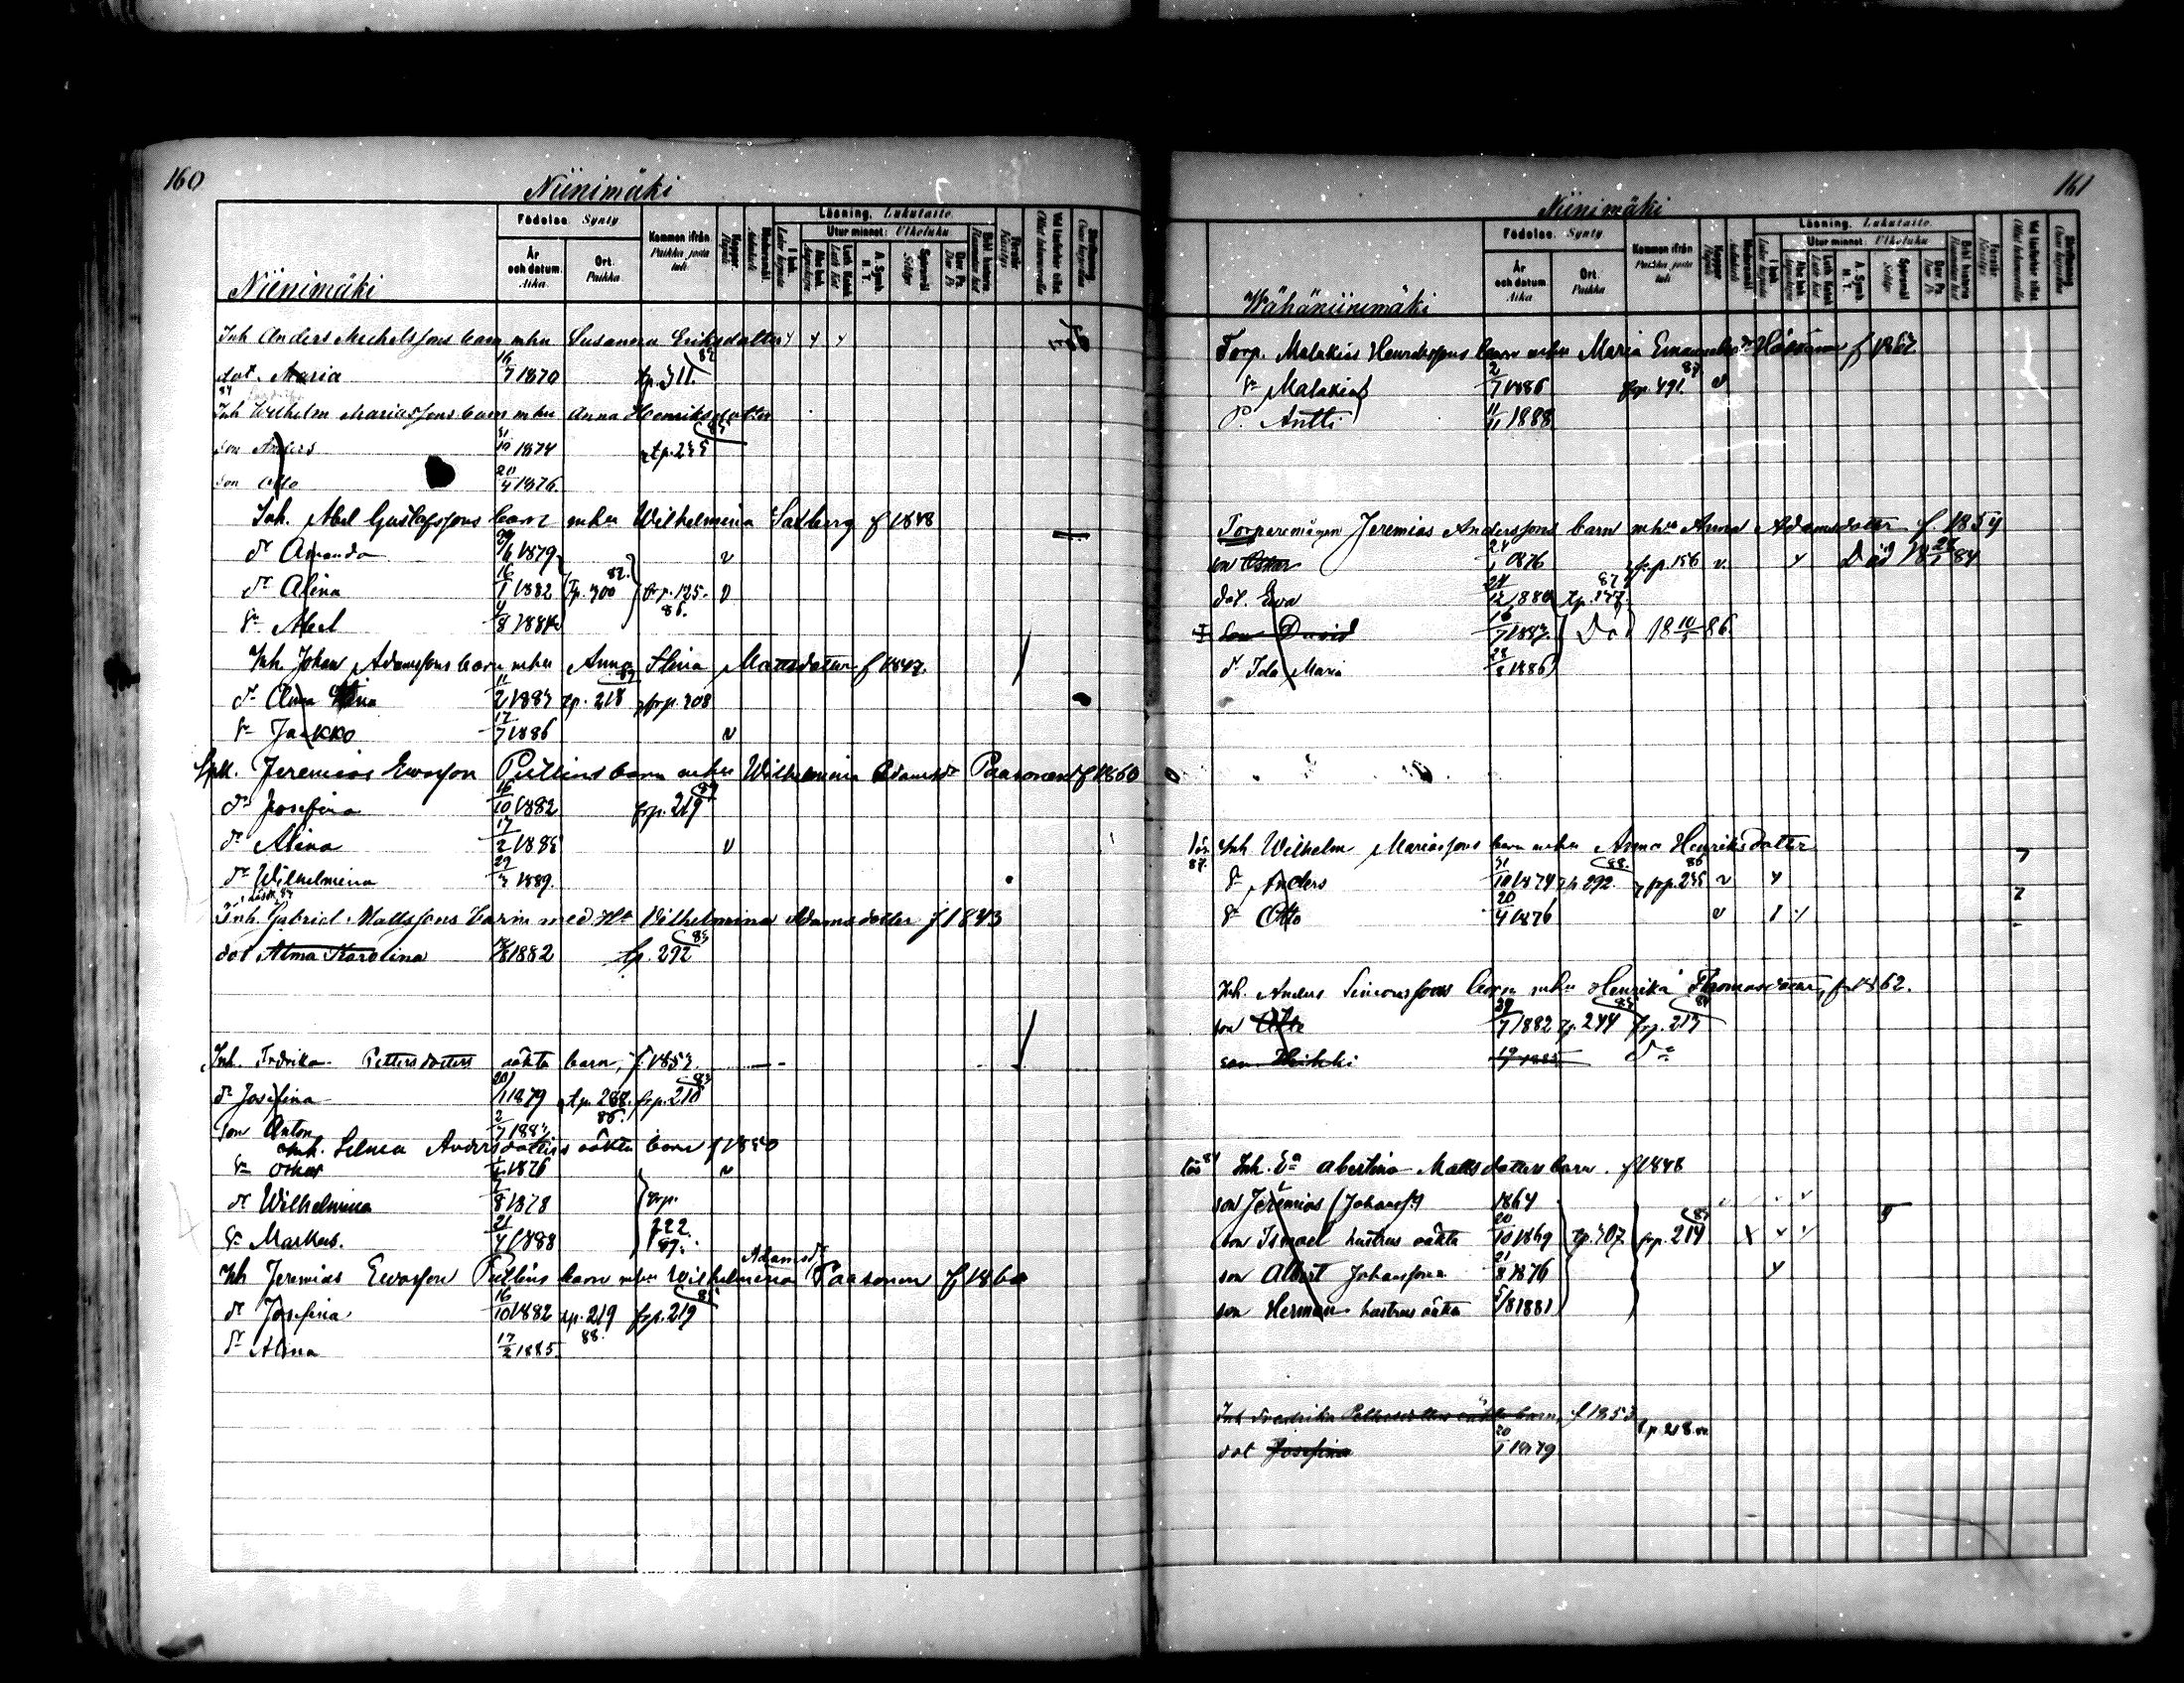 160
Niinimäki
Födelse. Synty
År och datum. Aika.
Ort. Paikka
Kommen ifrån Paikka josta tuli.
Koppor. Rupuli
Läsning. Lukutaito.
Utur minnet: Ulkoluku
I bok.
Luth. Katek.
A. Symb.
Spörsmål
Dav. Ps.
Niinimäki
Inh Anders Michelssons barn m hu Susanna Eriksdatter
dot. Maria 16/7 1870 tp. 311. 82
84
Inh Wilhelm Mariassons barn m hu Anna Henriksdotter
son Anders 31/10 1874 tp. 235 85
son Otto 20/4 1876.
Inh. Abel Gustafssons barn m hu Wilhelmina Saxberg f 1848
dr Amanda 29/6 1879
dr Alina 16/1 1882 Tp. 300 82. frp. 125. 86.
Sn Abel 4/8 1884
Inh. Johan Adamssons barn m hu Anna Stina Mattsdatter f 1847.
dr Alma Stina 11/2 1883 tp. 218 frp. 308
Sn Jaakko 17/7 1886
Jeremias Ewasson Putlins barn m hu Wilhelmina Adamsdr Paasonen f 1860
dr Josefina 16/10 1882 frp. 219
dr Alina 17/2 1885
dr Wilhelmina 29/3 1889.
Inh. Gabriel Mattssons barn med Ht Wilhelmina Adamsdotter f 1843
dot Alma Karolina 1882 tp. 292 83
Inh. Fredrika Pettersdotters oäkta barn, f. 1853
dr Josefina 20/1 1879 tp. 268. 86. frp. 210
son Anton 2/7
Inh. Selma Andersdotters oäkta barn f 1850
Sn Oskar 1876
dr Wilhelmina 7/8 1878 frp.
Sn Markus. 21/4 1888 222. 87.
Inh Jeremias Ewasson Putlins barn m hu Wilhelmina Adamsdr Paasonen f 1860
dr Josefina 16/10 1882 tp. 219 88. frp. 219 85
dr Alina 17/2 1885.
161
Niinimäki
Födelse. Synty
År och datum Aika
Ort. Paikka
Kommen ifrån Paikka josta tuli
Koppor Rupuli
Läsning. Lukutaito.
Utur minnet: Ulkoluku
I bok.
Luth. Katek.
A. Symb.
Spörsmål
Dav. Ps.
Wähäniinimäki
Torp. Malakias Henrikssons barn m hu Maria f 1862
Sn Malakias 2/7 1886 frp. 491. 87
P. Antti 11/11 1888
Torparemågen Jeremias Anderssons barn m hu Anna Adamsdotter f. 1854
son Oskar 24/1 1876 frp. 156 Död 18 84
dot. Ewa 24/12 1880 tp. 147. 87
son David 16/7 1883. Död 18 86
dr Ida Maria 28/8 1886
87.
Inh Wilhelm Mariassons barn m hu Anna Henriksdatter
Sn Anders 31/10 1874 tp 292. 88. frp. 235 86
Sn Otto 20/4 1876
Inh. Anders Simonssons barn m hu Henrika Thomasdotter, f 1862.
son Otto 1882 tp. 244 85 frp. 213 84
son Heikki
Inh. Ea Abertina Mattsdotters barn. f 1848
son Jeremias (Johanss.) 1864
son Ismael hustrus oäkta 20/10 1869 tp. 407 frp. 214
son Albert Johansson 21/8 1876
son Herman hustrus oäkta 5/8 1881
Inh Fredrika Pettersdotters oäkta barn, f 1853
dot Josefina 20/1 1879